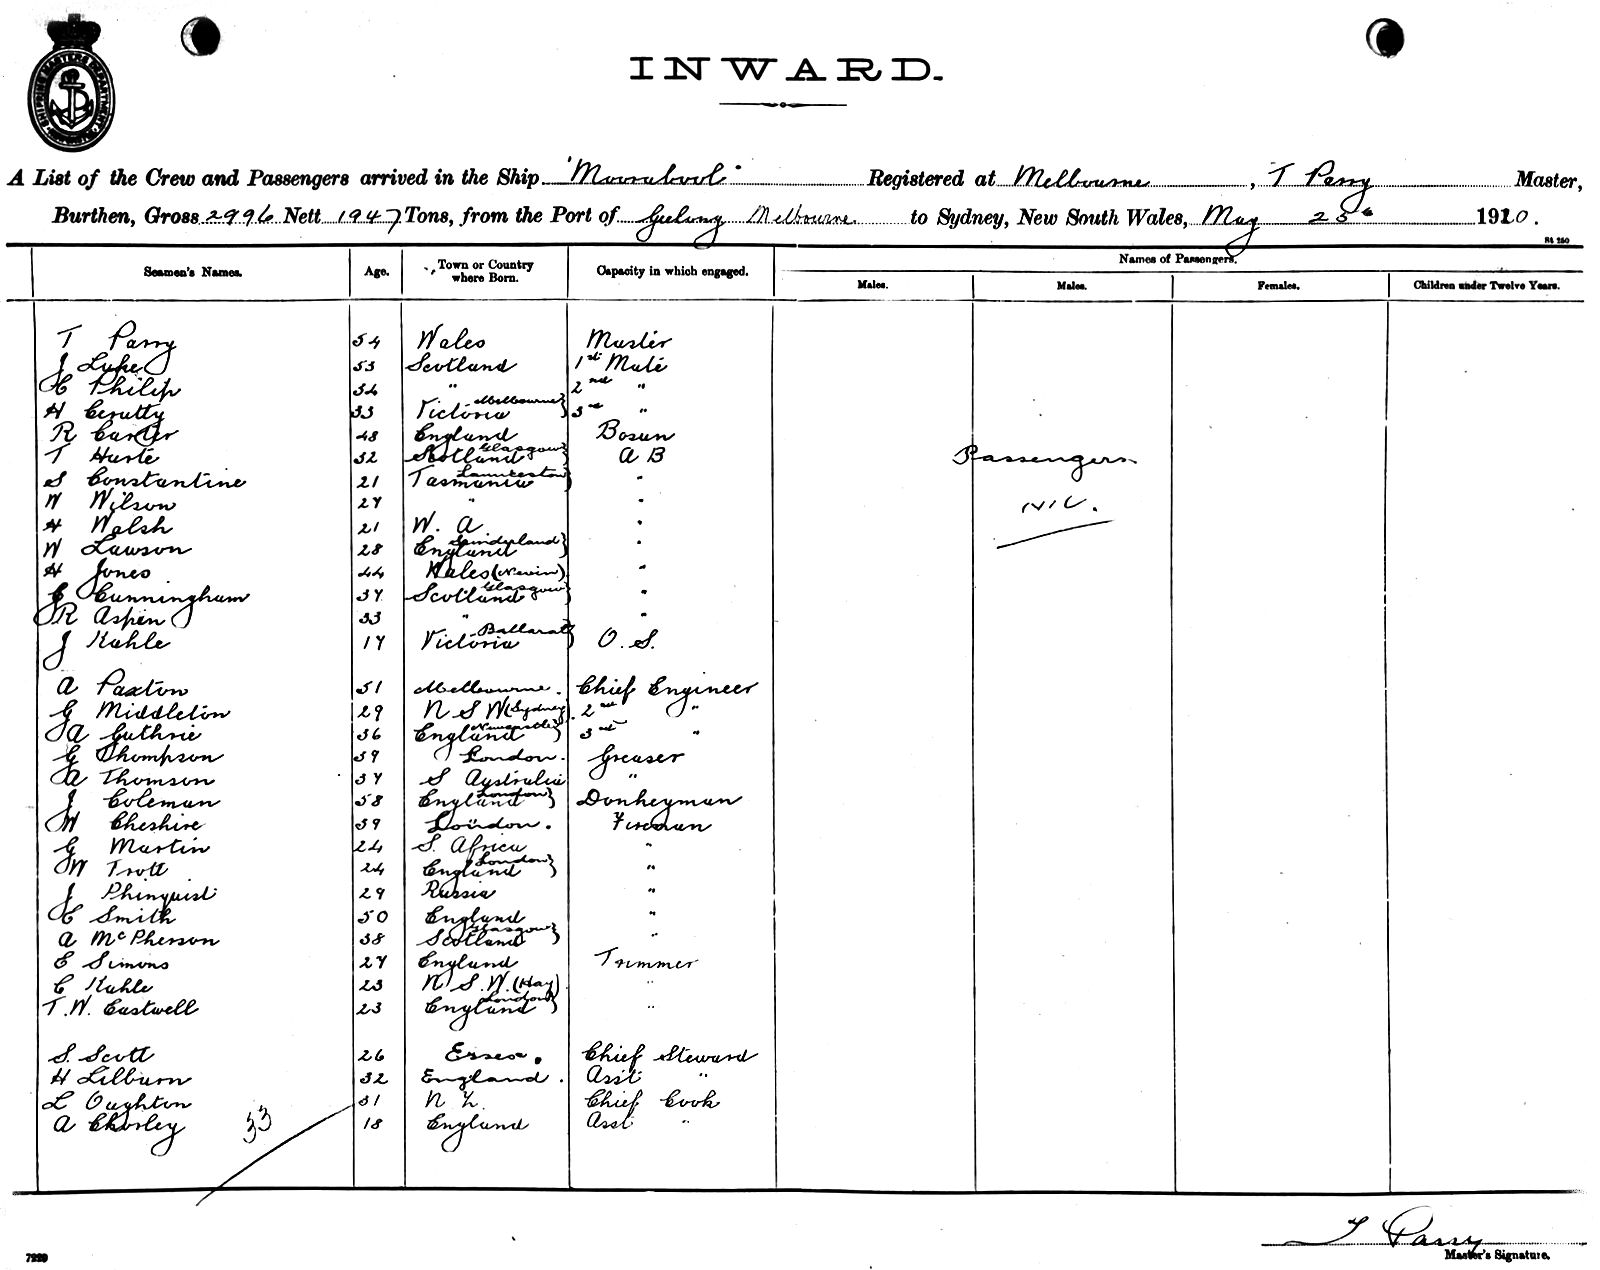 SHIPPING MASTERS DEPARTMENT
INWARD.
A List of the Crew and Passengers arrived in the Ship "Moorabool" Registered at Melbourne, T Parry Master,
Burthen, Gross 2996 Nett 1947 Tons, from the Port of Geelong Melbourne to Sydney, New South Wales, May 25th 1920.
Seamen's Names. Age. Town or Country where Born. Capacity in which engaged. Names of Passengers.
Males. Males. Females. Children under Twelve Years.
T Parry 54 Wales Master
J Luke 53 Scotland 1st Mate
C Philip 34 " 2nd "
H Cerutty 33 Victoria Melbourne} 3rd "
R Carter 48 England Bosun
T Harte 32 Scotland Glasgow} A B Passengers
S Constantine 21 Tasmania Launceston} "
W Wilson 27 " " Nil.
H Walsh 21 W. A "
W Lawson 28 England Sunderland} "
H Jones 44 Wales (Nevin) "
C Cunningham 37 Scotland Glasgow} "
R Aspen 33 " "
J Kahle 17 Victoria Ballarat} O. S.
A Paxton 51 Melbourne. Chief Engineer
G Middleton 29 N S W (Sydney). 2nd "
A Guthrie 36 England Newcastle} 3rd "
G Thompson 39 London. Greaser
A Thomson 37 S Australia "
J Coleman 58 England London} Donkeyman
W Cheshire 39 London. Fireman
G Martin 24 S. Africa "
W Trott 24 England London} "
J Phinquist 29 Russia "
C Smith 50 England "
A McPherson 38 Scotland Glasgow} "
E Simons 27 England Trimmer
C Kahle 23 N. S. W. (Hay) "
T. W. Eastwell 23 England London} "
S. Scott 26 Essex. Chief Steward
H Lilburn 32 England. Asst "
L Oughton 31 N Z. Chief Cook
A Chorley 18 England Asst "
33
T Parry
Master's Signature.
7229